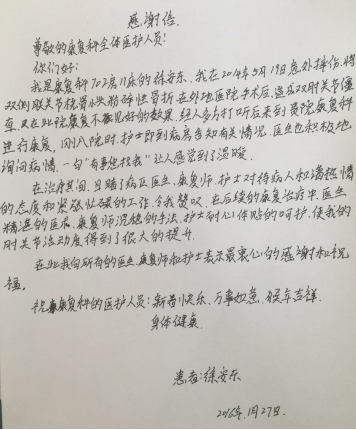 感谢信
尊敬的康复科全体医护人员！
你们好：
我是康复科702房11床的徐安东，我在2014年5月19日意外摔伤，将
双侧肘关节桡骨头粉碎性骨折，在外地医院手术后，造成双肘关节僵
直，又在此院康复不能见好的效果，经人多方打听后来到贵院康复科
进行康复，刚入院时，护士即到病房告知有关情况，医生也积极地
询问病情，一句"有事您找我"让人感觉到了温暖。
在治疗其间，目睹了病区医生、康复师、护士对待病人和蔼热情
的态度和紧张忙碌的工作，令我赞叹，在后续的康复治疗中，医生
精湛的医术，康复师沉稳的手法，护士耐心体贴的呵护，使我的
肘关节活动度得到了很大的提升。
在此我向所有的医生、康复师和护士表示最衷心的感谢和祝
福。
祝康复科的医护人员：新春快乐、万事如意、猴年吉祥
身体健康
患者：徐安东
2016年1月27日.